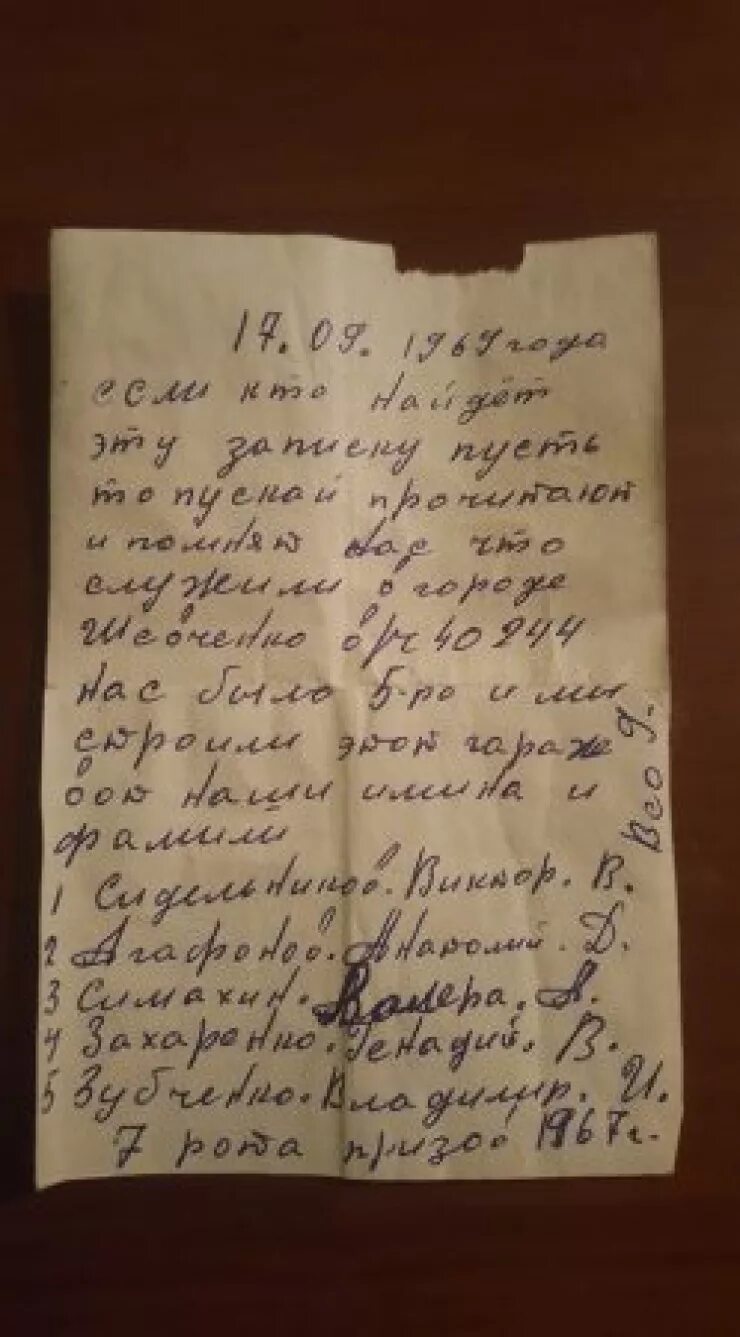 17.09.1969 года
если кто найдёт
эту записку пусть
то пускай прочитают
и помнят нас что
служили в городе
Шевченко в/ч 40244
нас было 5-ро и ми
строили этот гараж
вот наши имина и
фамили
1 Сидельников. Виктор. В.
2 Агафонов. Анатолий. Д.
3 Симахин. Валера. А.
4 Захаренко. Генадий. В.
5 Зубченко. Владимир. И.
7 рота призов 1967 г.